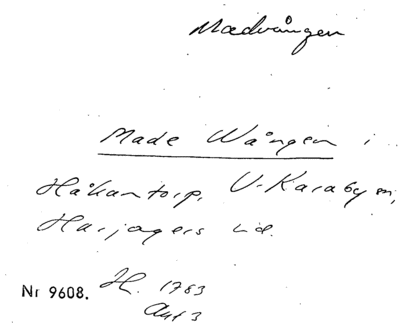 Madvången
Made Wången i
Håkantorp, V-Karaby sn,
Harjagers hd.
Nr 9608. H. 1783
Akt 3